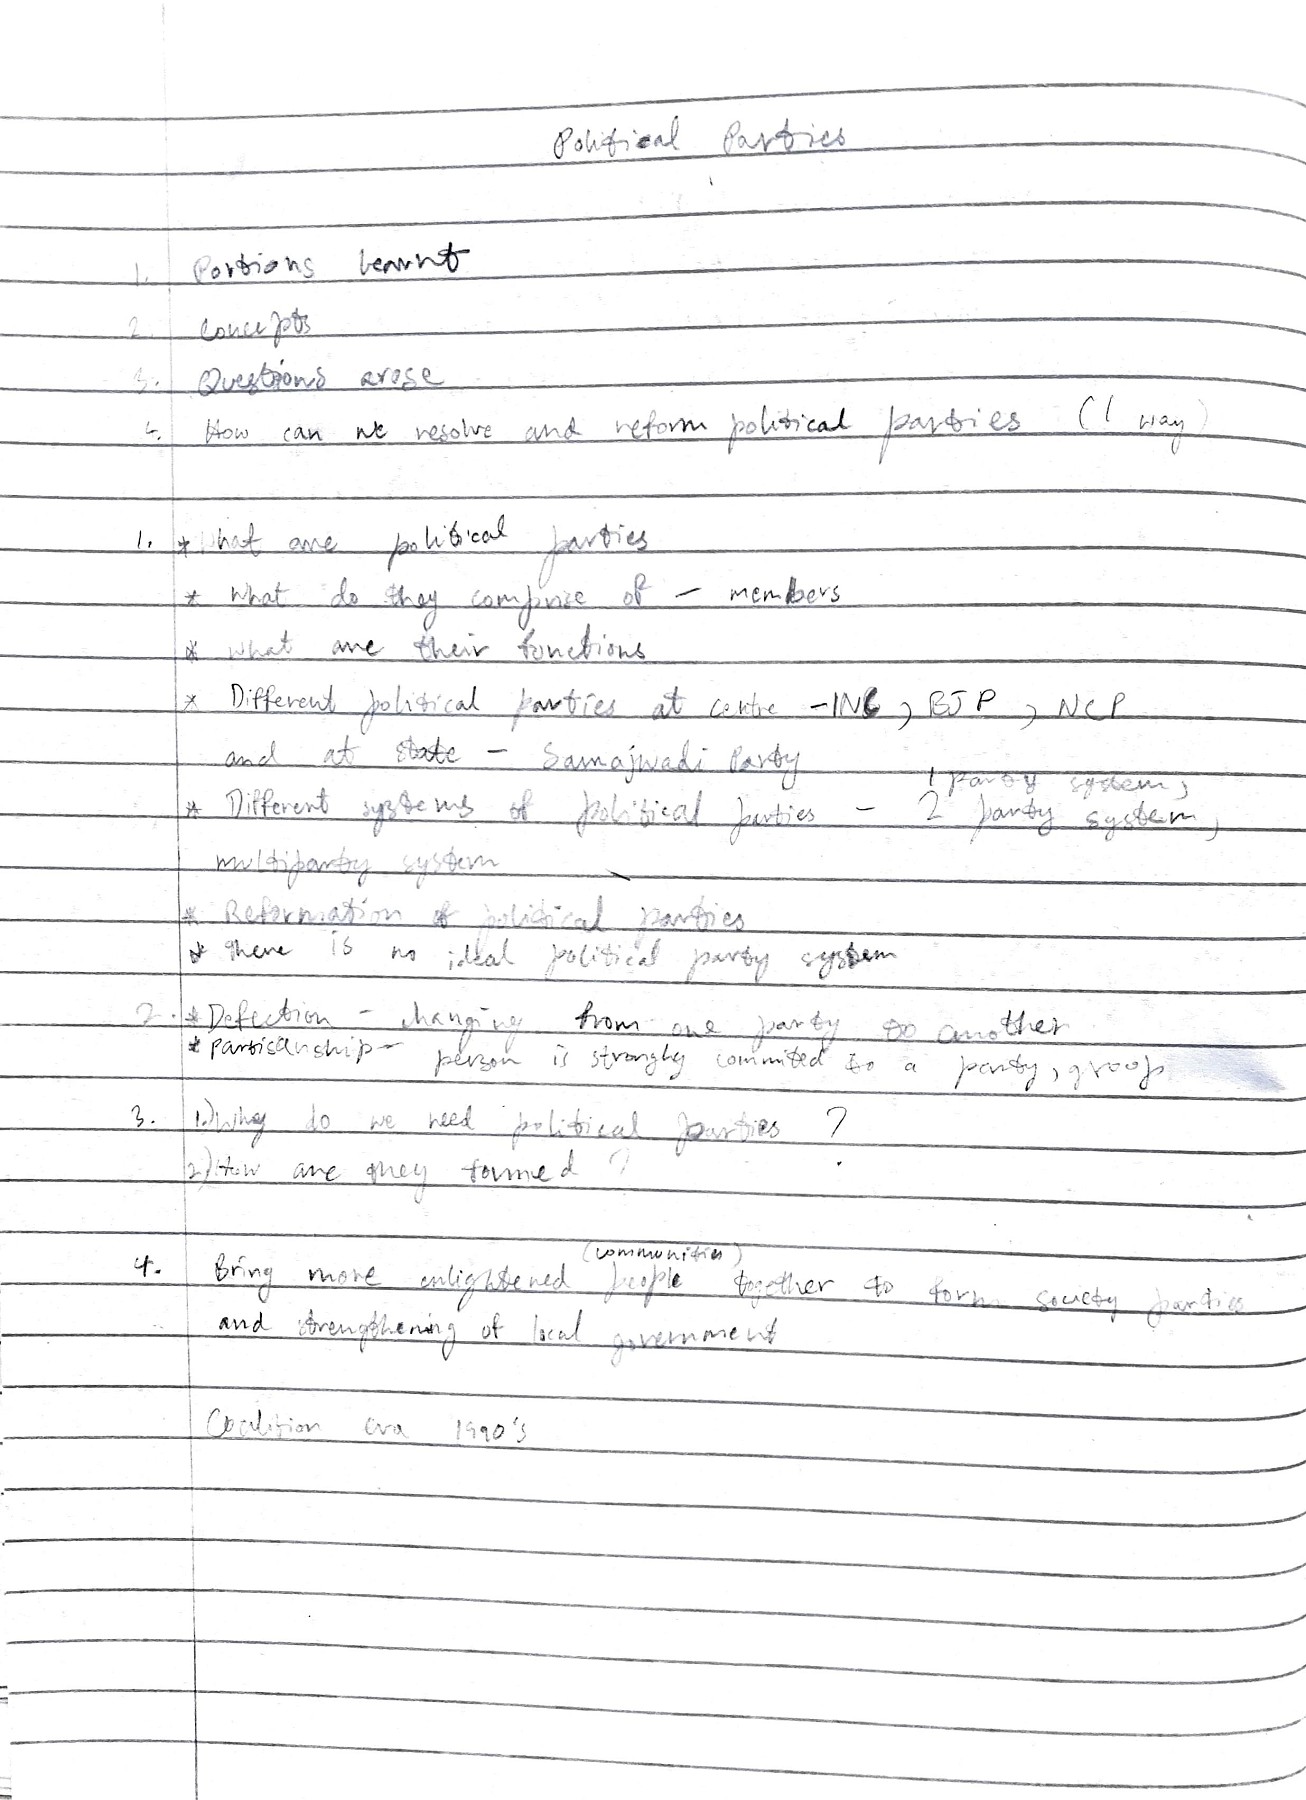 Political Parties
1. Portions learnt
2. Concepts
3. Questions arose
4. How can we resolve and reform political parties (1 way)
1. * What are political parties
* What do they comprise of - members
* What are their functions
* Different political parties at centre - INC, BJP, NCP
and at state - Samajwadi Party
1 party system,
* Different systems of political parties - 2 party system,
multiparty system
* Reformation of political parties
* There is no ideal political party system
2. * Defection - changing from one party to another
* Partisanship - person is strongly commited to a party, group
3. 1.) Why do we need political parties ?
2) How are they formed ?
(communities)
4. Bring more enlightened people together to form society parties
and strengthening of local government
Coalition era 1990's